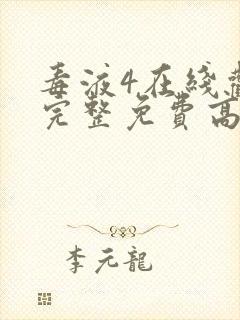 毒液4在线
完整免费高
李元龍